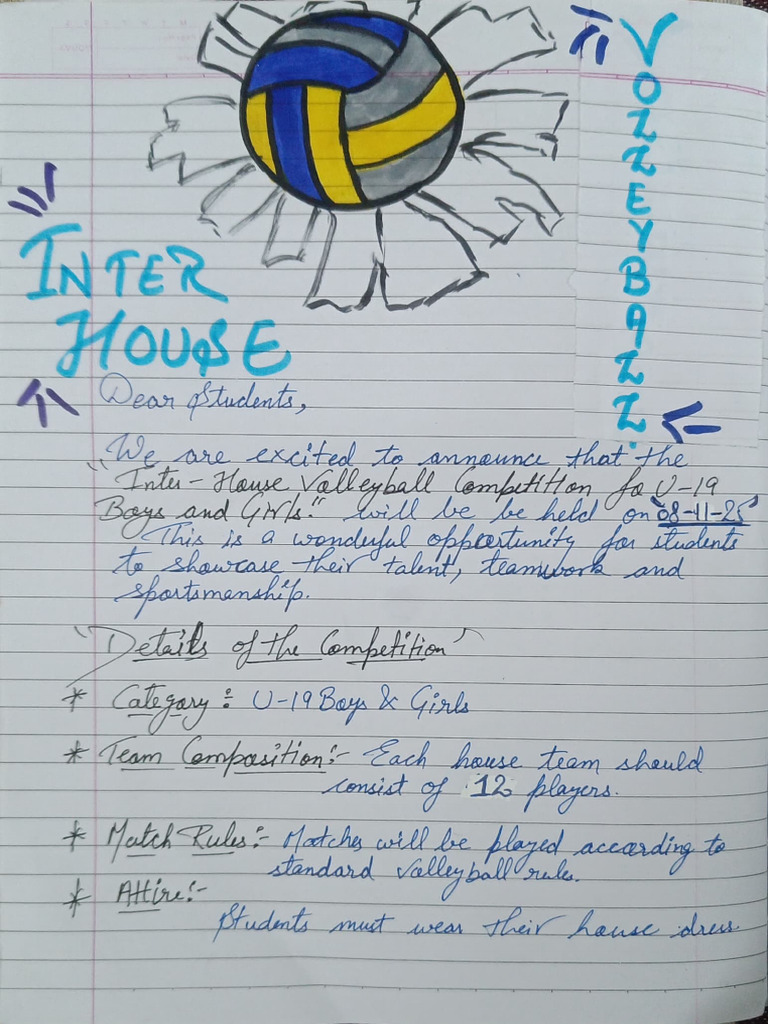 VOLLEYBALL
INTER
HOUSE
Dear Students,
We are excited to announce that the
"Inter-House Valleyball Competition fo U-19
Boys and Girls." will be be held on "08-11-25"
This is a wonderful oppertunity for students
to showcase their talent, teamwork and
sportsmanship.
"Details of the Competition"
* Category :- U-19 Boys & Girls
* Team Composition:- Each house team should
consist of 12 players.
* Match Rules:- Matches will be played according to
standard Valleyball rules.
* Attire:-
Students must wear their house dress